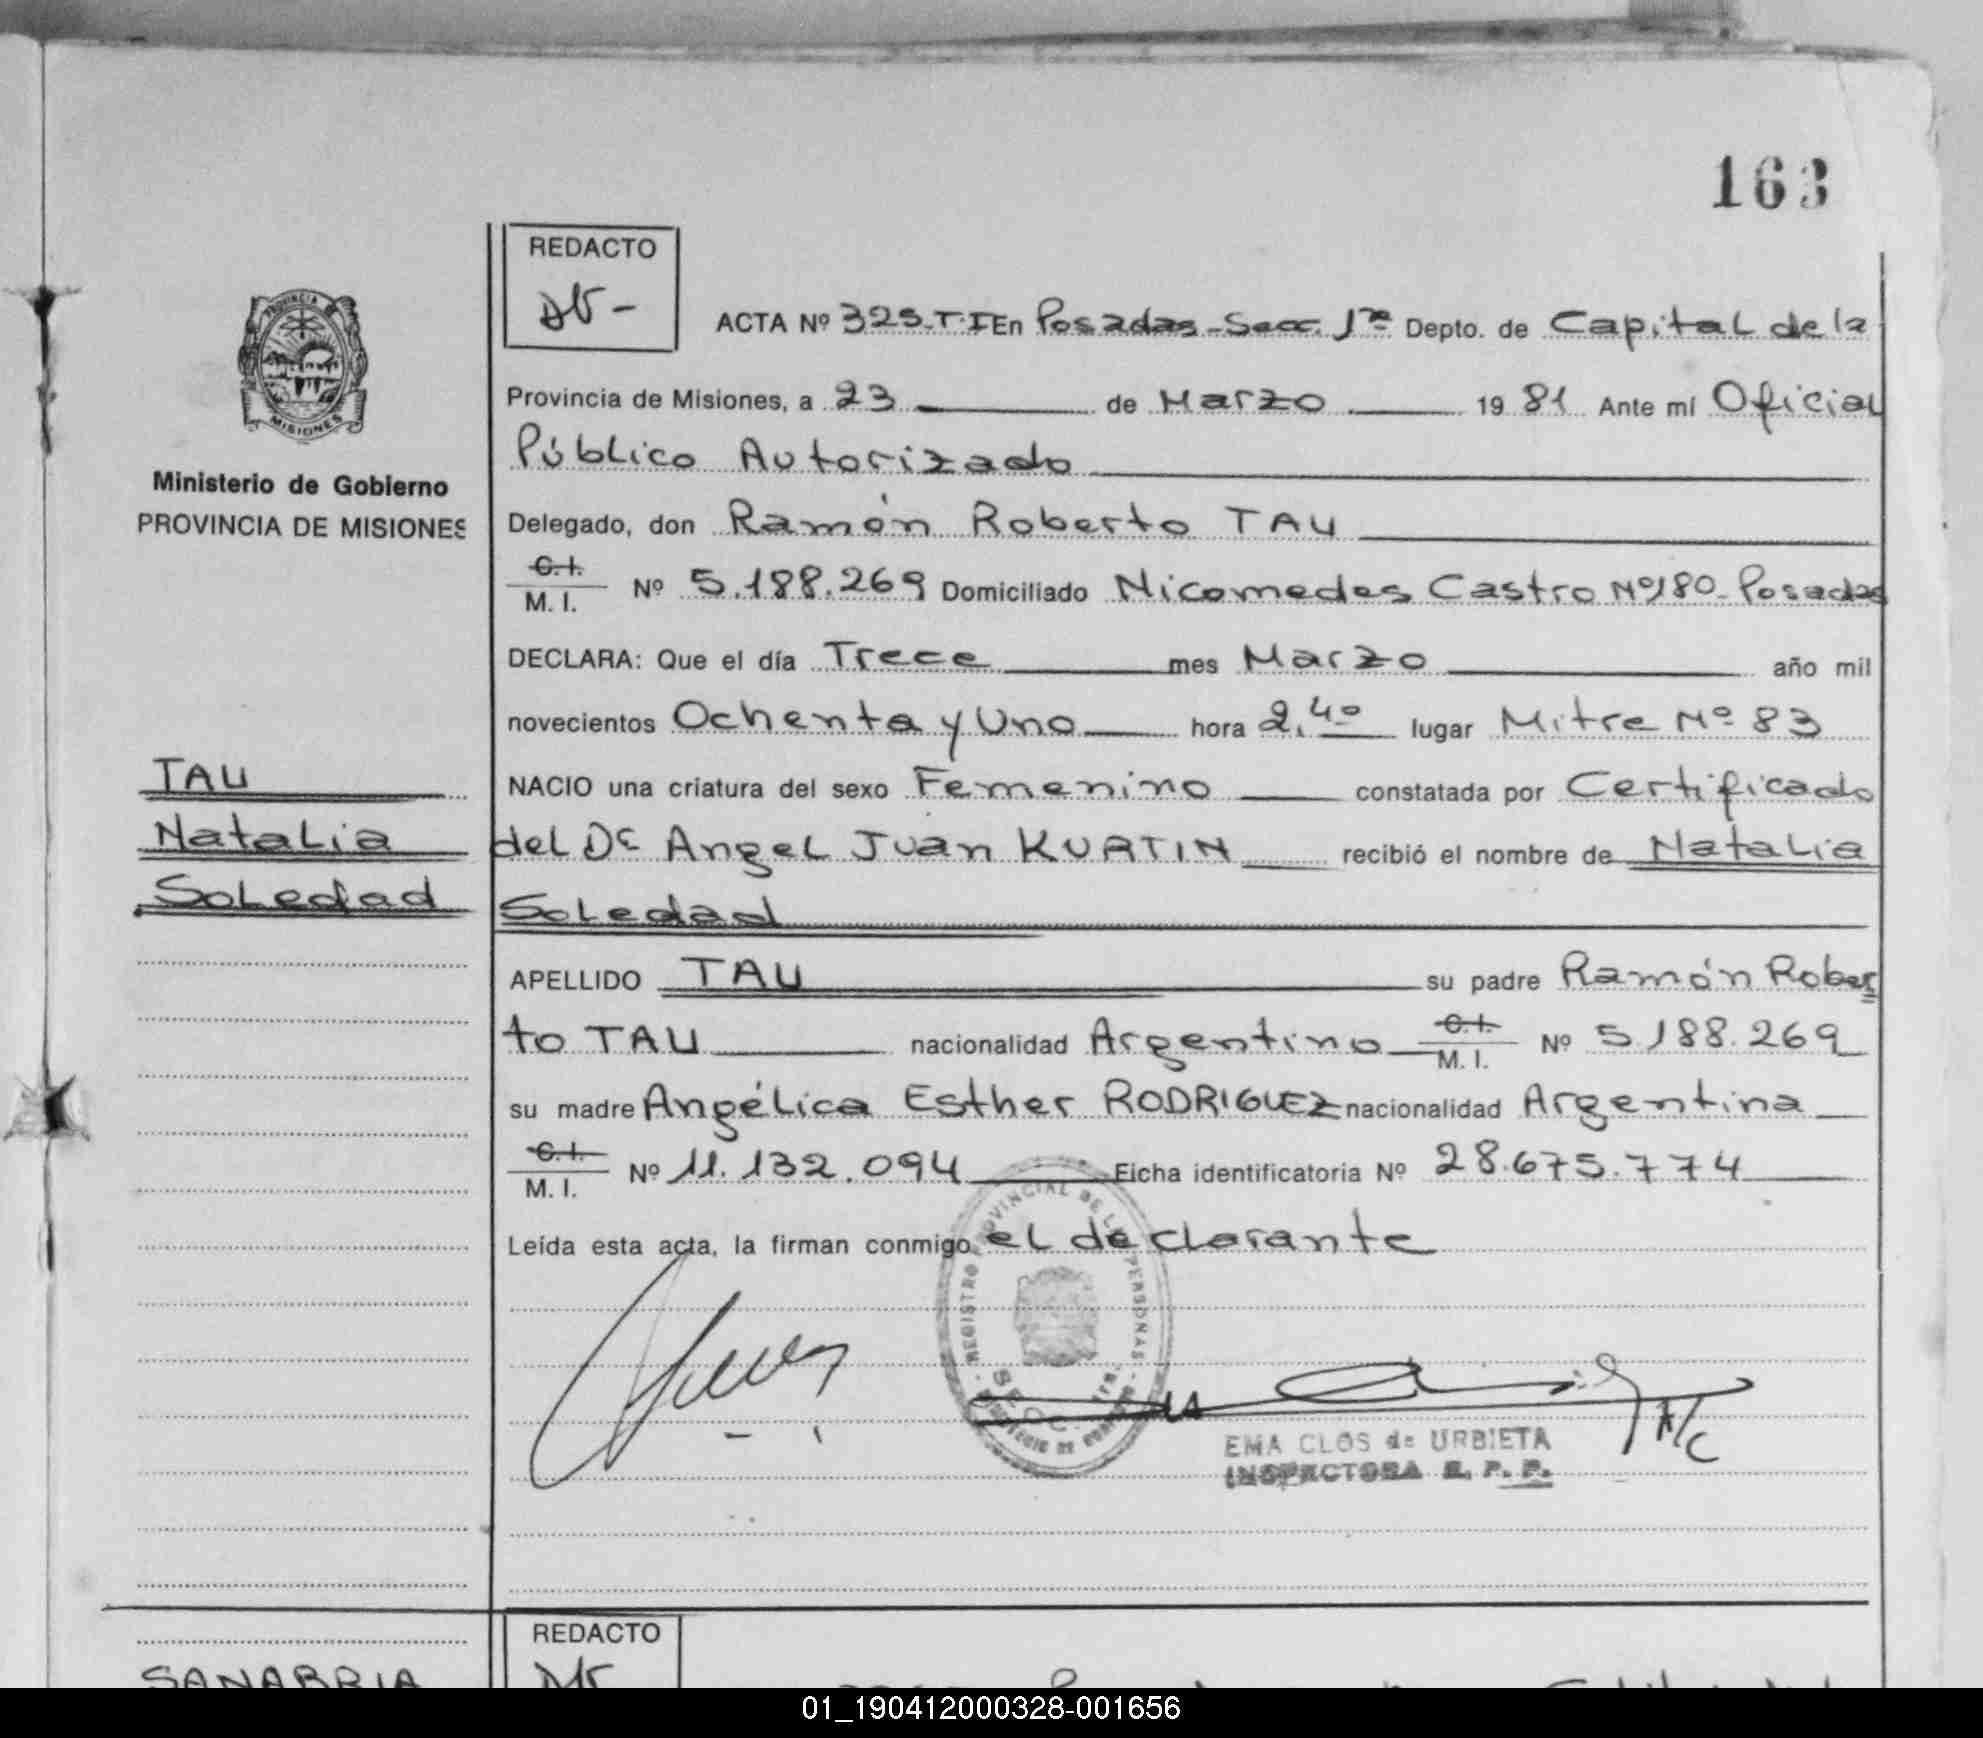 163
REDACTO
PROVINCIA
MISIONES
Ministerio de Gobierno
PROVINCIA DE MISIONES
TAU
Natalia
Soledad
ACTA Nº 325-T.I En Posadas-Secc. 1ra Depto. de Capital de la
Provincia de Misiones, a 23 de Marzo 19 81 Ante mí Oficial
Público Autorizado
Delegado, don Ramón Roberto TAU
C.I.
M. I. Nº 5.188.269 Domiciliado Nicomedes Castro Nº180-Posadas
DECLARA: Que el día Trece mes Marzo año mil
novecientos Ochenta y Uno hora 2,40 lugar Mitre Nº 83
NACIO una criatura del sexo Femenino constatada por Certificado
del Dr Angel Juan KURTIN recibió el nombre de Natalia
Soledad
APELLIDO TAU su padre Ramón Rober
to TAU nacionalidad Argentino C.I. M. I. Nº 5.188.269
su madre Angélica Esther RODRIGUEZ nacionalidad Argentina
C.I.
M. I. Nº 11.132.094 Ficha identificatoria Nº 28.675.774
Leída esta acta, la firman conmigo el declarante
REGISTRO PROVINCIAL DE LAS PERSONAS
EMA CLOS de URBIETA
INSPECTORA R. P. P.
A/C
REDACTO
SANABRIA
01_190412000328-001656